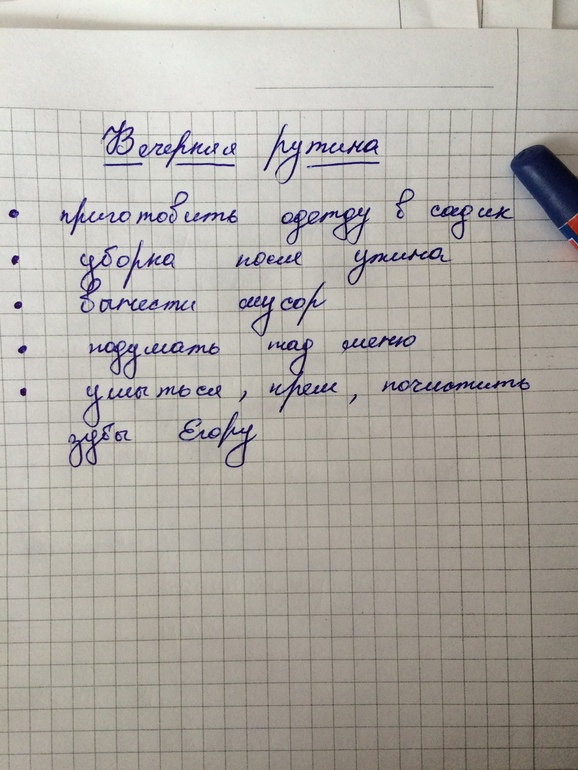 Вечерняя рутина
• приготовить одежду в садик
• уборка после ужина
• вынести мусор
• подумать над меню
• умыться, крем, почистить
зубы Егору